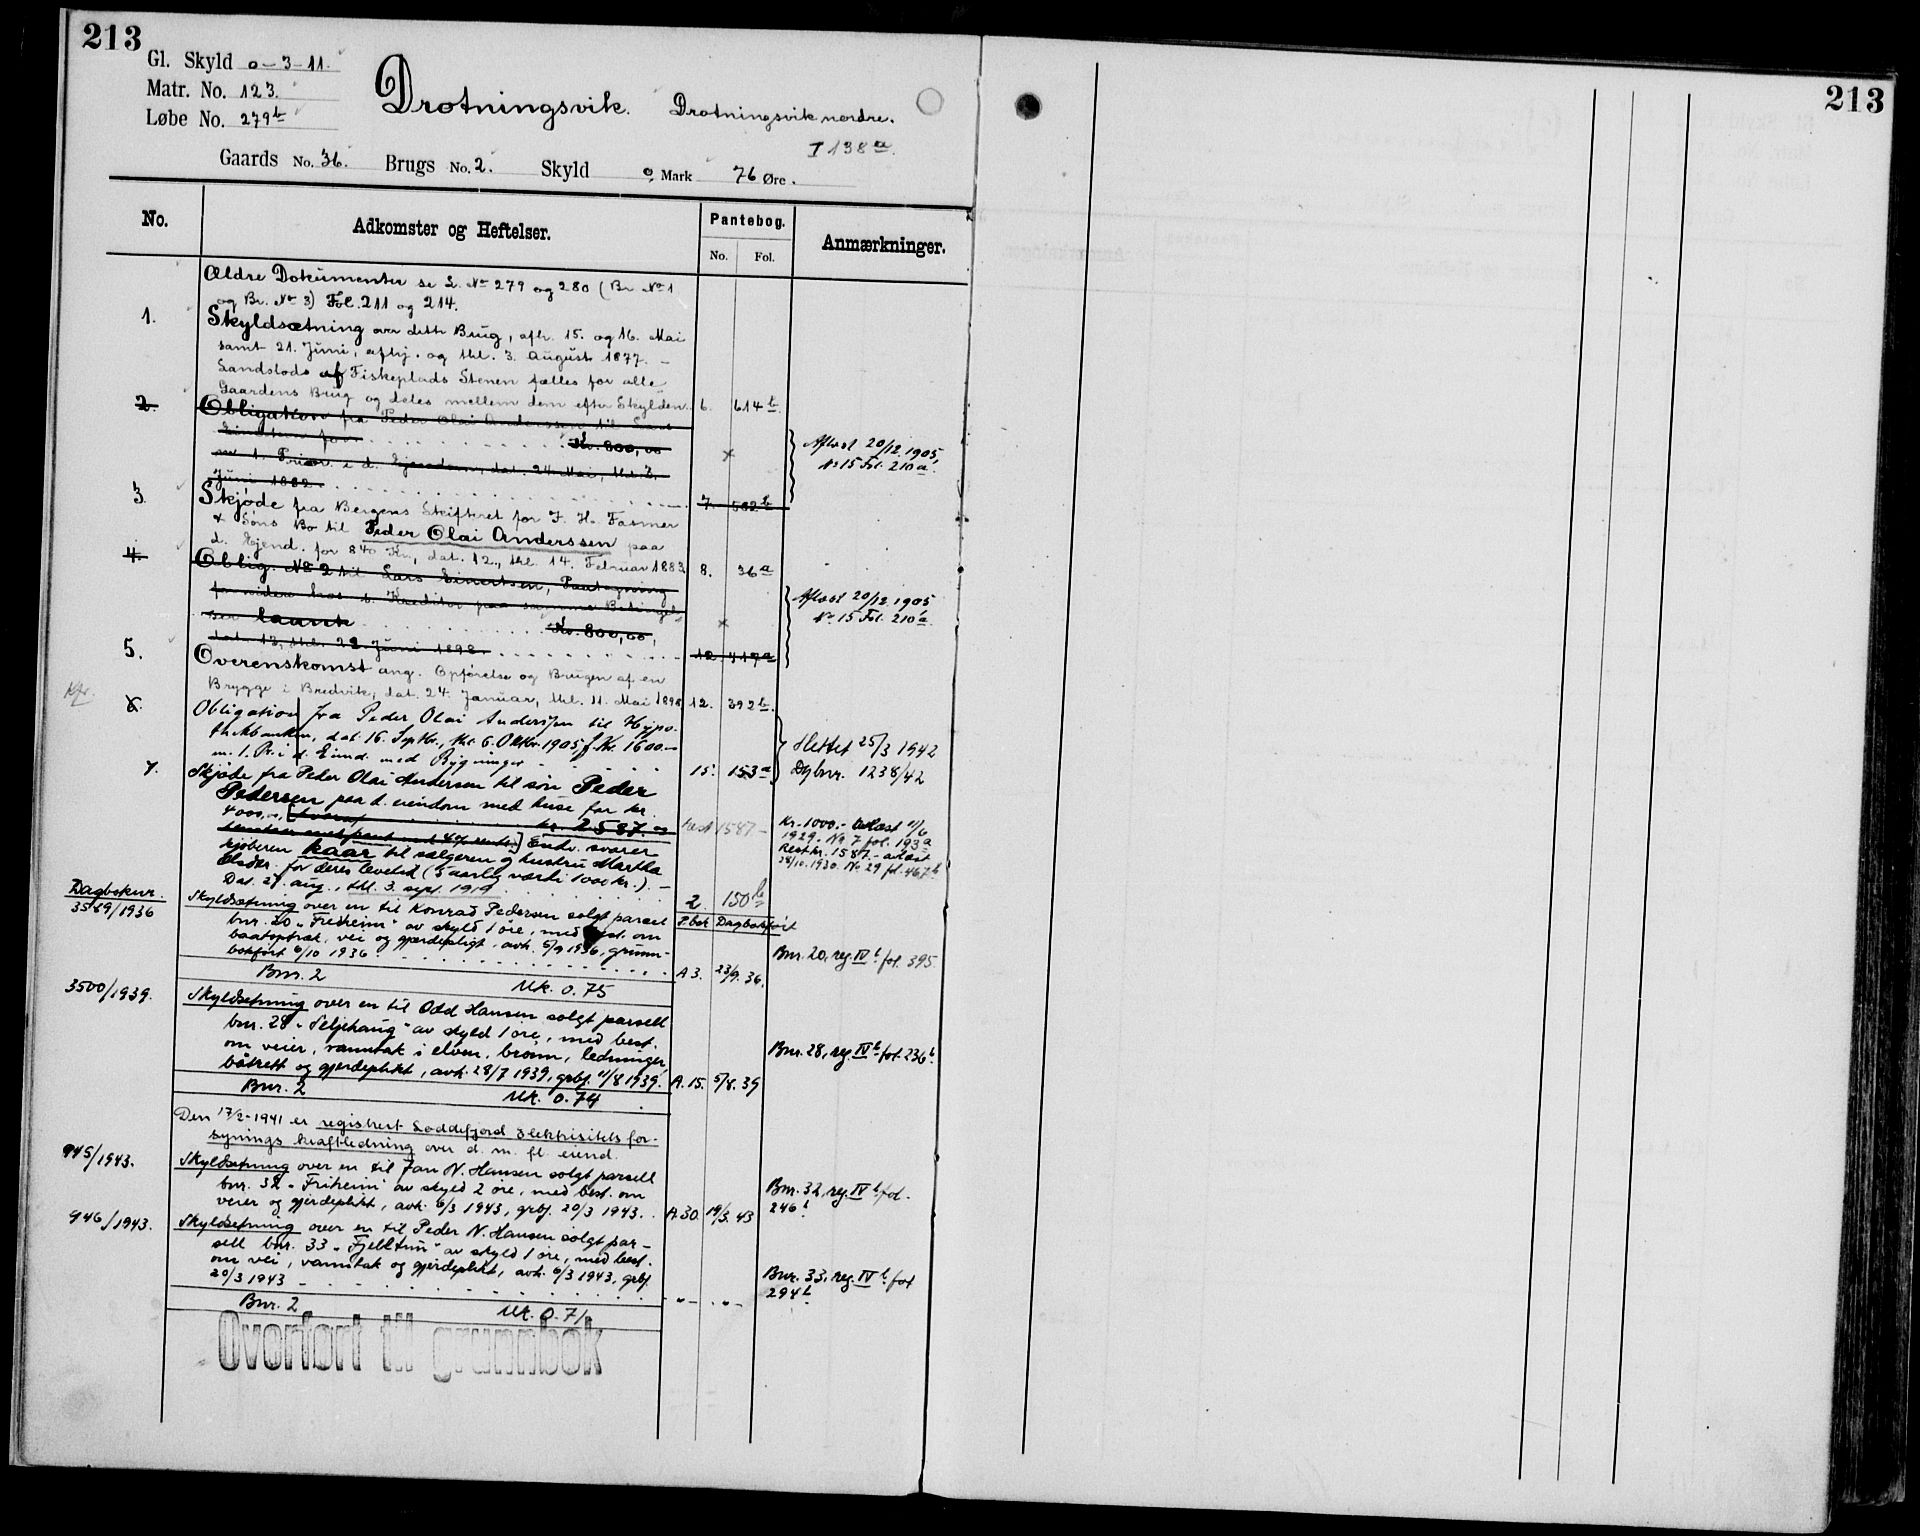 213
213
Gl. Skyld 0-3-11.
Matr. No. 123.
Løbe No. 279b
Drotningsvik. Drotningsvik nordre.
I 138a.
Gaards No. 36. Brugs No. 2. Skyld 0 Mark 76 Øre.
No. Adkomster og Heftelser. Pantebog. No. Fol. Anmærkninger.
Ældre Dokumenter se L. No 279 og 280 (Br No 1
og Br. No 3) Fol. 211 og 214.
1. Skyldsætning over dette Brug, afh. 15. og 16. Mai
samt 21. Juni, afhj. og thl. 3. August 1877. –
Landslods af Fiskeplads Stenen fælles for alle
Gaardens Brug og deles mellem dem efter Skylden. 6. 614b
2. Obligation fra Peder Olai Anderssen til Lars
Einertsen for Kr. 800,00
m. 1. Prior. i d. Ejendom, dat. 24. Mai, thl. 2.
Juni 1882. 7. 582b
Aflæst 20/12. 1905,
No 15 Fol. 210a.
3. Skjøde fra Bergens Skifteret for J. H. Fasmer
& Søns Bo til Peder Olai Anderssen paa
d. Ejend. for 840 Kr., dat. 12., thl. 14. Februar 1883. 8. 36a
4. Oblig. No 2 til Lars Einertsen, Pantegivning
for videre hos s. Kreditor paa samme Betingel-
ser laante Kr. 800,00,
dat. 13, thl. 22. Juni 1898. 12. 417a
Aflæst 20/12 1905
No 15 Fol. 210a
5. Overenskomst ang. Opførelse og Brugen af en
Brygge i Bredvik, dat. 24. Januar, thl. 11. Mai 1898 12. 392b.
6. Obligation fra Peder Olai Anderssen til Hypo-
thekbanken, dat. 16. Septbr., thl. 6. Oktbr. 1905, f. Kr. 1600.-
m. 1. Pr. i d. Eiend. med Bygninger 15. 153a
Slettet 25/3 1942
Dgbnr. 1238/42
7. Skjøde fra Peder Olai Andersen til søn Peder
Pedersen paa d. eiendom med huse for kr.
4000,-, kr. 2587.00
Endv. svarer
kjøberen kaar til sælgeren og hustru Martha
Elsdtr. for deres levetid (5 aarlig værdi 1000 kr.). –
Dat. 27. aug., thl. 3. sept. 1919 2. 150b
rest 1587 –
Kr. 1000.- avlæst 11/6
1929. No 7 fol. 193a
Rest kr. 1587.- avlæst
28/10. 1930. No 29 fol. 467b
Dagboknr.
3569/1936
Skyldsætning over en til Konrad Pedersen solgt parsel
bnr. 20 "Fredheim" av skyld 1 øre, med best. om
baatoptræk, vei og gjerdepligt, avh. 5/9 1936, grunn-
bokført 6/10 1936. P.bok Dagbokført A 3. 23/9. 36.
Bnr. 20, reg. IVb fol. 395
Bnr. 2 Mk. 0.75
3500/1939.
Skyldsetning over en til Odd Hansen solgt parsell
bnr. 28 "Seljehaug" av skyld 1 øre, med best.
om veier, vanntak i elven, brønn, ledninger,
båtrett og gjerdeplikt, avh. 28/7 1939, grbf. 11/8 1939. A. 15. 5/8. 39
Bnr. 28, reg. IVb fol. 236b.
Bnr. 2 Mk. 0.74
Den 17/2-1941 er registrert Loddefjord Elektrisitetsfor-
synings kraftledning over d. m. fl. eiend.
945/1943.
Skyldsetning over en til Jan N. Hansen solgt parsell
bnr. 32 "Friheim" av skyld 2 øre, med best. om
veier og gjerdeplikt, avh. 6/3 1943, grbf. 20/3 1943. A. 30. 19/3. 43
Bnr. 32, reg. IVb fol.
246b
946/1943.
Skyldsetning over en til Peder N. Hansen solgt par-
sell bnr. 33 "Fjelltun" av skyld 1 øre, med best.
om vei, vanntak og gjerdeplikt, avh. 6/3 1943, grbf.
20/3 1943 – " – . " –
Bnr. 33, reg. IVb fol
294b
Bnr. 2 Mk. 0.71
Overført til grunnbok